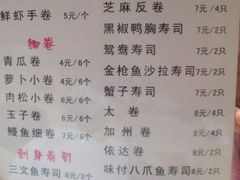 鲜虾手卷 5元/个
细卷
青瓜卷 4元/6个
萝卜小卷 4元/6个
肉松小卷 6元/6个
玉子卷 6元/6个
鳗鱼细卷 7元/6个
刺身寿司
三文鱼寿司 8元/2只
芝麻反卷 7元/4只
黑椒鸭胸寿司 7元/2只
鸳鸯寿司 7元/2只
金枪鱼沙拉寿司 7元/2只
蟹子寿司 7元/2只
太卷 8元/4只
加州卷 8元/4只
依达卷 8元/2只
味付八爪鱼寿司 8元/2只